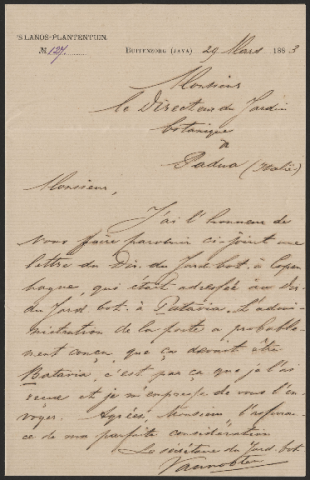 'S LANDS-PLANTENTUIN.
№ 127. BUITENZORG (JAVA) 29 Mars 1883
Monsieur
le Directeur du Jardin
botanique
à
Padua (Italie)
Monsieur,
J'ai l'honneur de
vous faire parvenir ci-joint une
lettre du Dir. du Jard. bot. à Copen
hague, qui était adressée au
du Jard. bot. à Patavia. L'admi-
nistration de la poste a probable-
ment conçu, que ça devait être
Batavia, c'est pas ça que je l'ai
reçue et je m'empresse de vous l'en-
voyer. Agréez, Monsieur l'assuran-
ce de ma parfaite considération
Le secrétaire du Jard. bot.